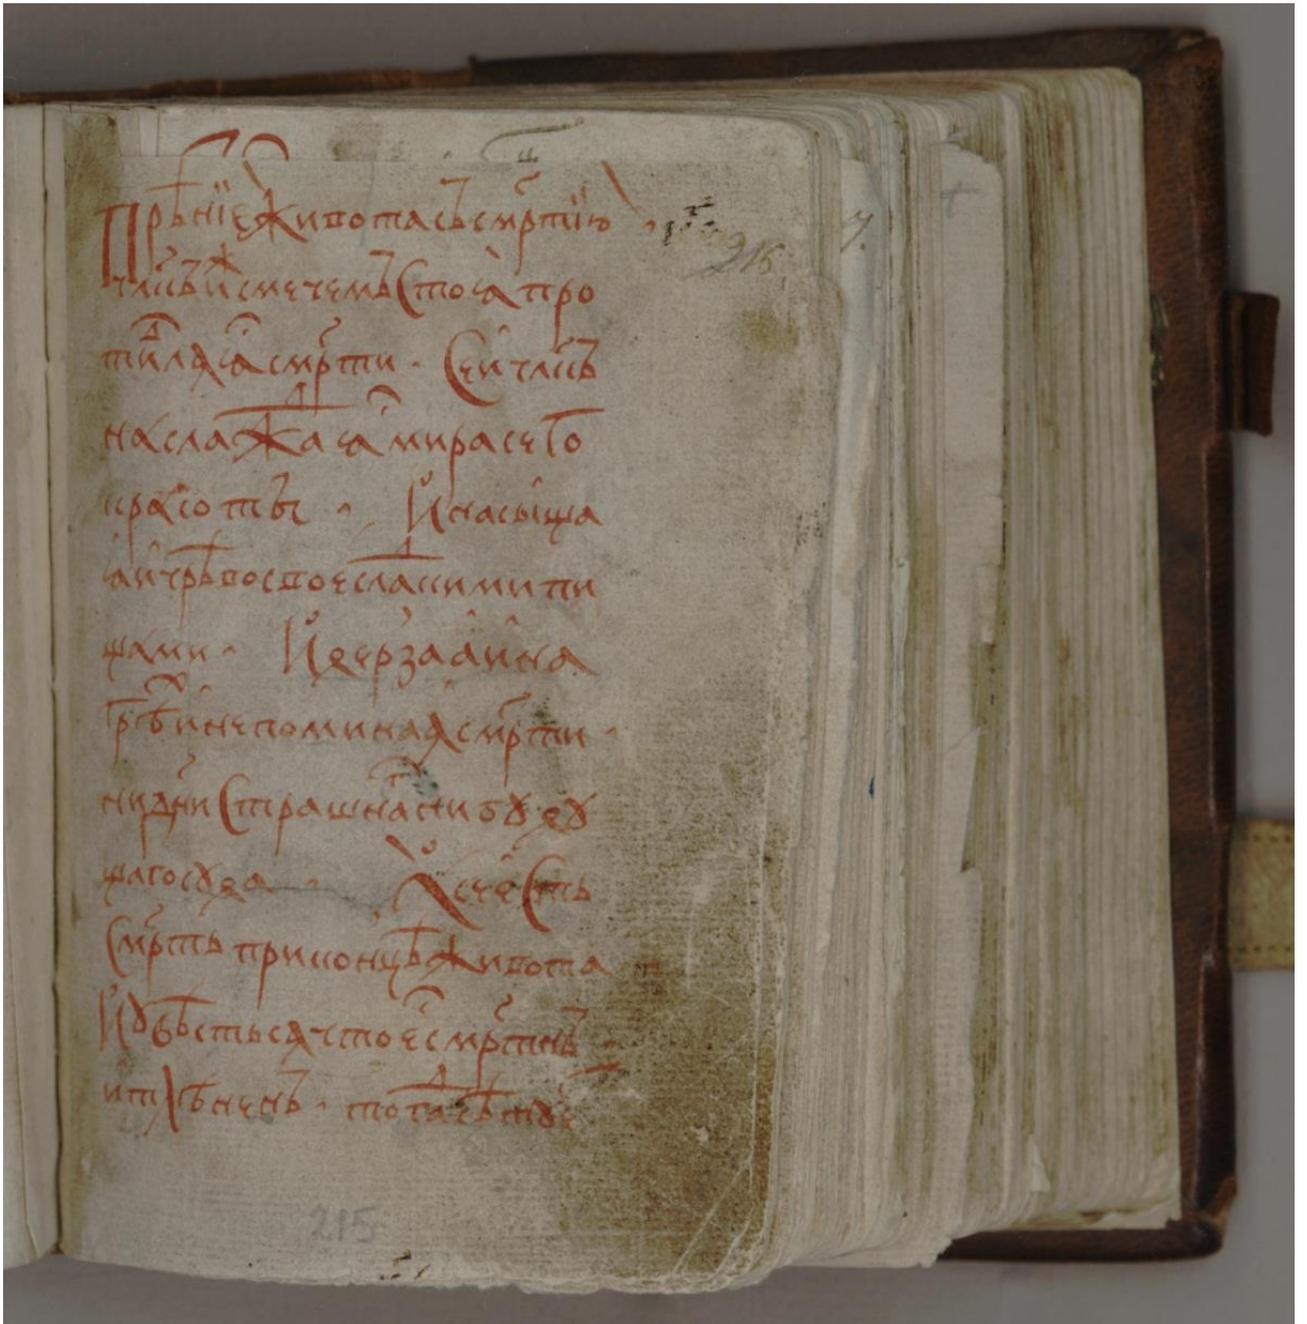 Прѣнїе живота съ смр҃тїю
чл҃къ и с мечемъ стоѧ про
тивѧⷭ҇ѧ смр҃ти · Сеи чл҃къ
наслажаⷣѧ мира сего
красотъ · И насыща
ѧ и чрѣво свое слаⷣкими пи
щами · И дерзаѧ и на
грѣⷯ и не поминаѧ смр҃ти ·
ни дн҃и страшнаⷢ҇ ни бꙋдꙋ
щаго сꙋда · Ꙗ се есть
смр҃ть при концѣ живота
И ꙋвѣстьсѧ что есⷮ смр҃тнъ
и тлѣненъ ·
216
215